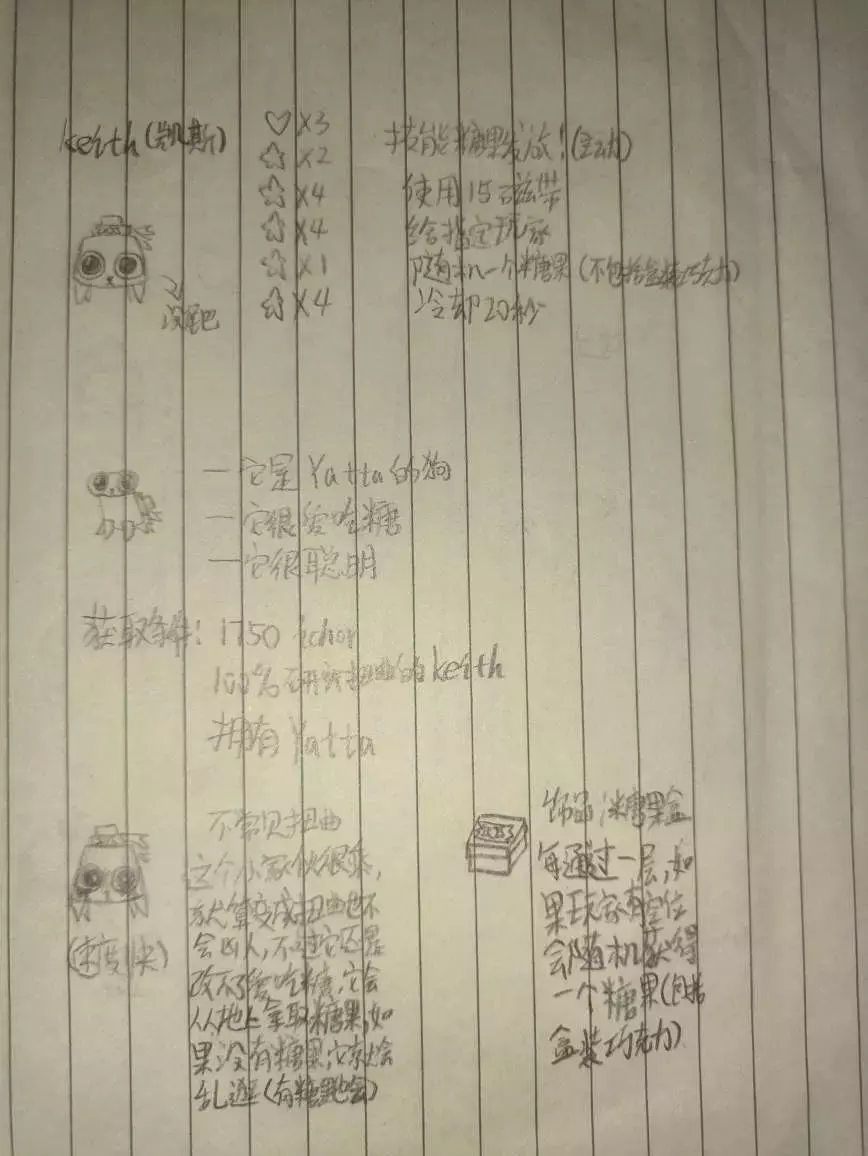 keith(凯斯)
♡×3
☆×2
☆×4
☆×4
☆×1
☆×4
技能糖果发放!(主动)
使用15磁带
给指定玩家
随机一个糖果(不包括盒装巧克力)
冷却20秒
没尾巴
一它是Yatta的狗
一它很爱吃糖
一它很聪明
获取条件:1750 ichor
100%研究扭曲的keith
拥有Yatta
(速度快)
不常见扭曲
这个小家伙很乖,
就算变成扭曲也不
会凶人,不过它还是
改不了爱吃糖,它会
从地上拿取糖果,如
果没有糖果,它就会
乱逛(有糖也会)
饰品:糖果盒
每通过一层,如
果玩家有空位
会随机获得
一个糖果(包括
盒装巧克力)